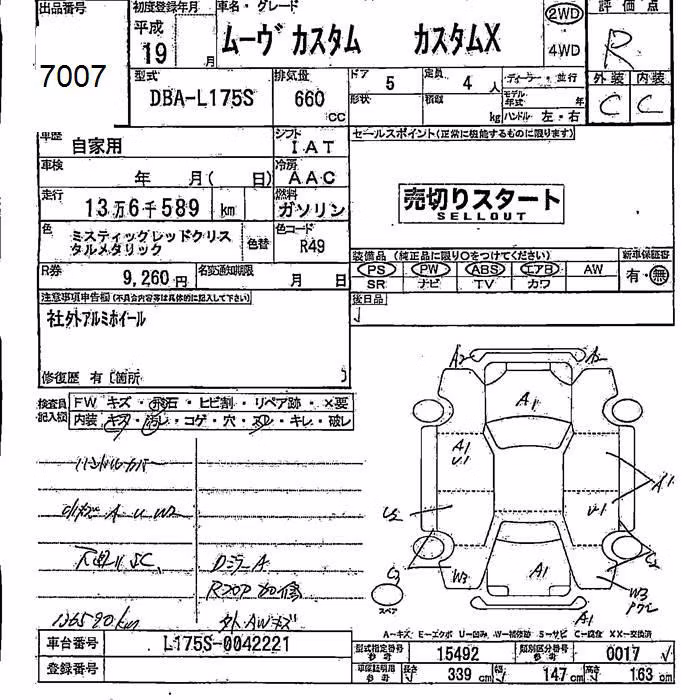 出品番号
7007
初度登録年月
平成
19 月
車名・グレード
ムーヴ カスタム カスタムX
2WD
4WD
評価点
R
外装 内装
C C
型式
DBA-L175S
排気量
660 CC
ドア 5
定員 4 人
形状
積載 kg
ディーラー・並行
モデル年式 年
ハンドル 左・右
車歴
自家用
シフト
IAT
車検
年 月( 日)
冷房
AAC
走行
13万6千589 km
燃料
ガソリン
色
ミスティックレッドクリス
タルメタリック
色替
色コード
R49
R券
9,260円
名変通知期限
月 日
セールスポイント(正常に機能するものに限ります)
売切りスタート
SELLOUT
装備品 (純正品に限り○をつけてください)
PS PW ABS エアB AW
SR ナビ TV カワ
新車保証書
有・無
後日品
注意事項申告欄(不具合内容等は具体的に記入して下さい)
社外アルミホイール
修復歴 有〔箇所 〕
検査員記入欄
FW キズ・飛石・ヒビ割・リペア跡・×要
内装 キズ・汚レ・コゲ・穴・スレ・キレ・破レ
ハンドルカバー
小キズ A U W2
下廻り SC
136590km
DミラーA
外AWキズ
A2
A2
A1
A1
U1
A1
U1
U2
C2
C2
W3
A1
W3
A1
スペア
A-キズ E-エクボ U-凹み W-補修跡 S-サビ C-腐食 XX-交換済
車台番号
L175S-0042221
登録番号
型式指定番号
参考
15492
類別区分番号
参考
0017
車検証明用
参考
長さ 339 cm
幅 147 cm
高さ 163 cm